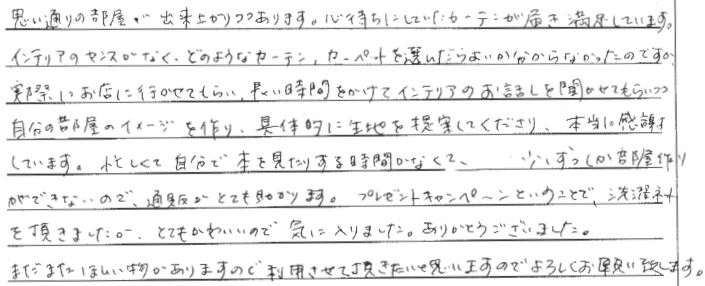 思い通りの部屋が出来上がりつつあります。心待ちにしていたカーテンが届き満足しています。
インテリアのセンスがなく、どのようなカーテン、カーペットを選んだらよいか分からなかったのですが、
実際にお店に行かせてもらい、長い時間をかけてインテリアのお話しを聞かせてもらいつつ
自分の部屋のイメージを作り、具体的に生地を提案してくださり、本当に感謝
しています。忙しくて自分で本を見たりする時間がなくて、少しずつしか部屋作り
ができないので、通販がとても助かります。プレゼントキャンペーンということで、洗濯ネット
を頂きましたが、とてもかわいいので気に入りました。ありがとうございました。
まだまだほしい物がありますので利用させて頂きたいと思いますのでよろしくお願い致します。